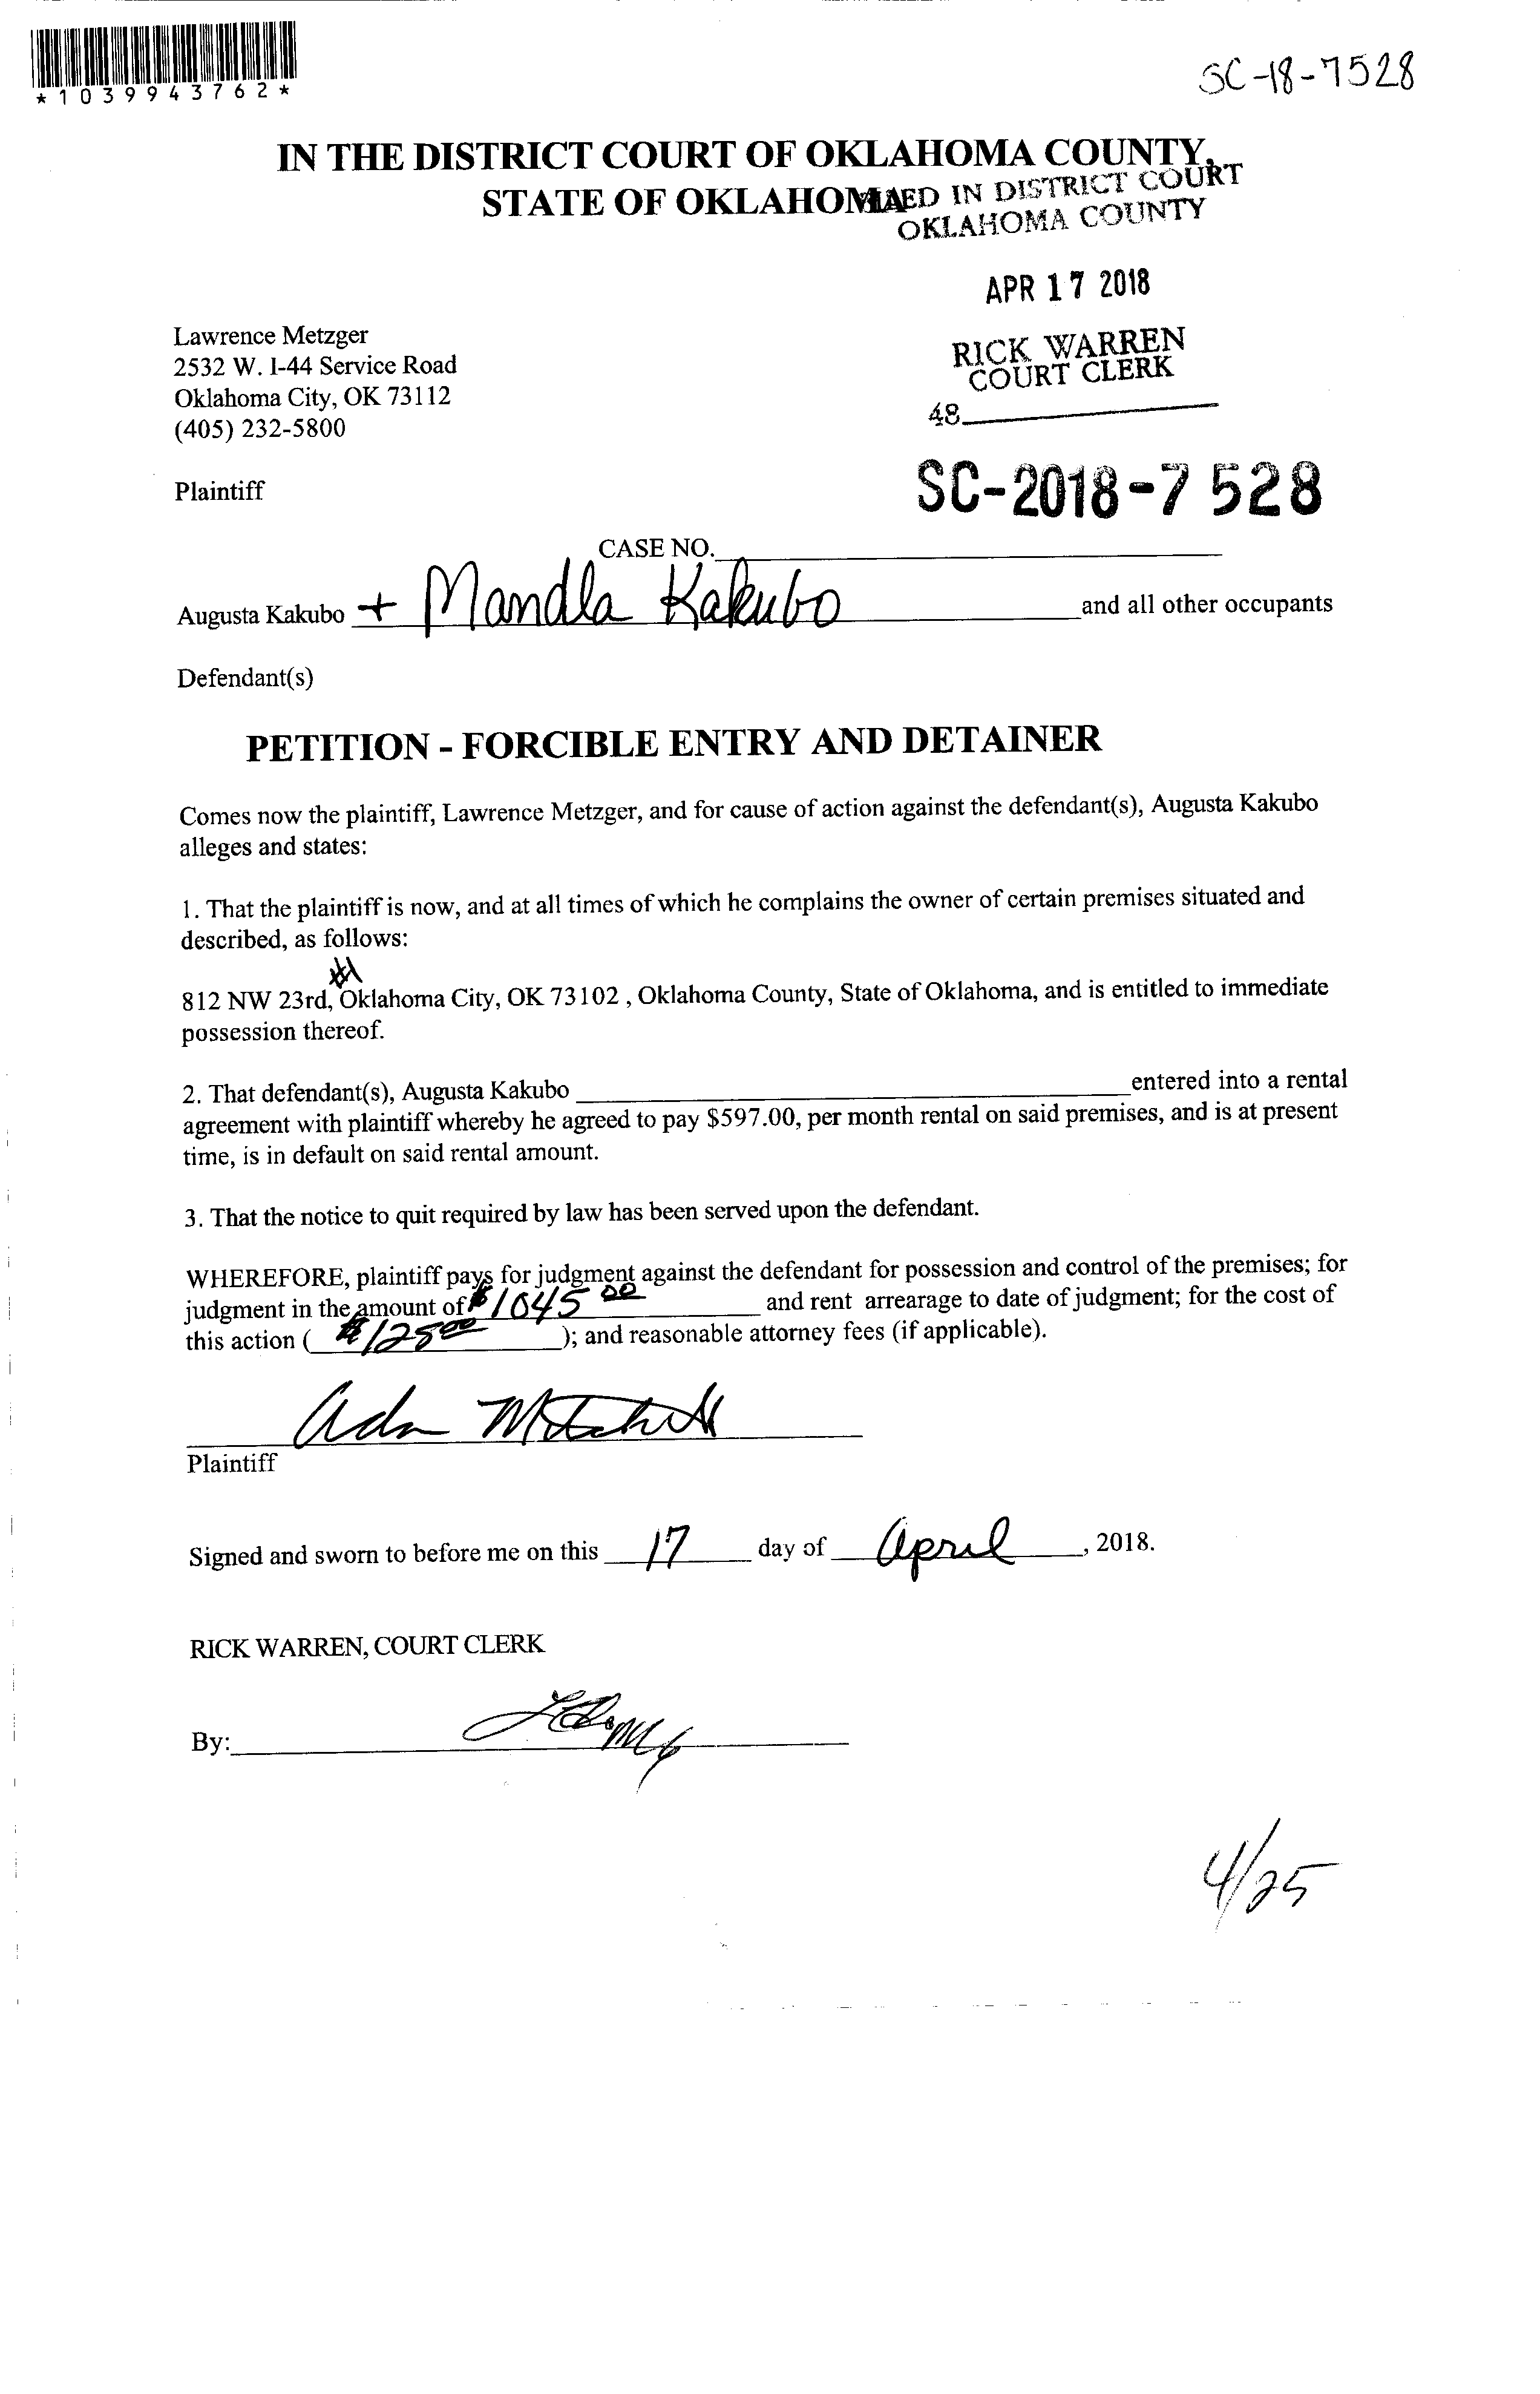 *1039943762*
SC-18-7528
IN THE DISTRICT COURT OF OKLAHOMA COUNTY,
STATE OF OKLAHOMA
IN DISTRICT COURT
OKLAHOMA COUNTY
APR 17 2018
Lawrence Metzger
RICK WARREN
2532 W. I-44 Service Road
COURT CLERK
Oklahoma City, OK 73112
48
(405) 232-5800
Plaintiff
SC-2018-7528
CASE NO.
Augusta Kakubo + Mandla Kakubo and all other occupants
Defendant(s)
PETITION - FORCIBLE ENTRY AND DETAINER
Comes now the plaintiff, Lawrence Metzger, and for cause of action against the defendant(s), Augusta Kakubo
alleges and states:
1. That the plaintiff is now, and at all times of which he complains the owner of certain premises situated and
described, as follows:
812 NW 23rd, Oklahoma City, OK 73102 , Oklahoma County, State of Oklahoma, and is entitled to immediate
possession thereof.
2. That defendant(s), Augusta Kakubo entered into a rental
agreement with plaintiff whereby he agreed to pay $597.00, per month rental on said premises, and is at present
time, is in default on said rental amount.
3. That the notice to quit required by law has been served upon the defendant.
WHEREFORE, plaintiff pays for judgment against the defendant for possession and control of the premises; for
judgment in the amount of $1045 00 and rent arrearage to date of judgment; for the cost of
this action ( $125 00 ); and reasonable attorney fees (if applicable).
Plaintiff
Signed and sworn to before me on this 17 day of April , 2018.
RICK WARREN, COURT CLERK
By:
4/25